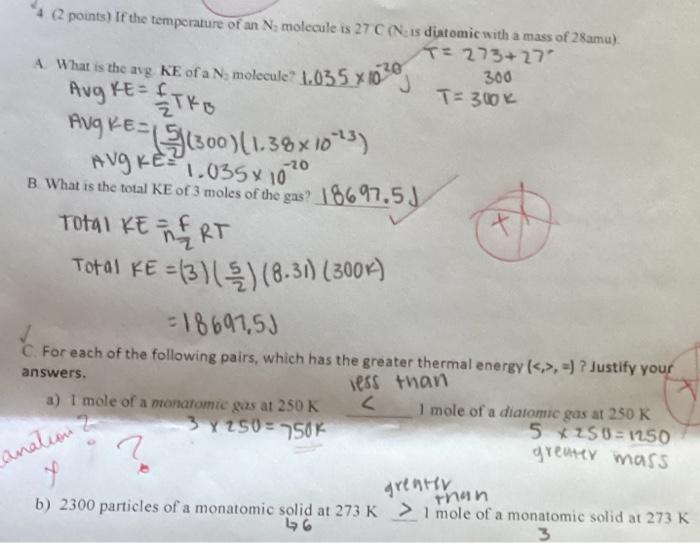 4. (2 points) If the temperature of an N₂ molecule is 27°C (N₂ is diatomic with a mass of 28amu).
T = 273+27°
300
T = 300K
A. What is the avg. KE of a N₂ molecule? 1.035 × 10⁻²⁰ J
Avg KE = f/2 TKB
Avg KE = (5/2)(300)(1.38 × 10⁻²³)
Avg KE = 1.035 × 10⁻²⁰
B. What is the total KE of 3 moles of the gas? 18697.5J
Total KE = n f/2 RT
Total KE = (3)(5/2)(8.31)(300K)
= 18697.5J
C. For each of the following pairs, which has the greater thermal energy (<,>, =) ? Justify your
answers.
less than
a) 1 mole of a monatomic gas at 250 K < 1 mole of a diatomic gas at 250 K
3 × 250 = 750K 5 × 250 = 1250
greater mass
anation?
?
greater
than
b) 2300 particles of a monatomic solid at 273 K > 1 mole of a monatomic solid at 273 K
↳6 3